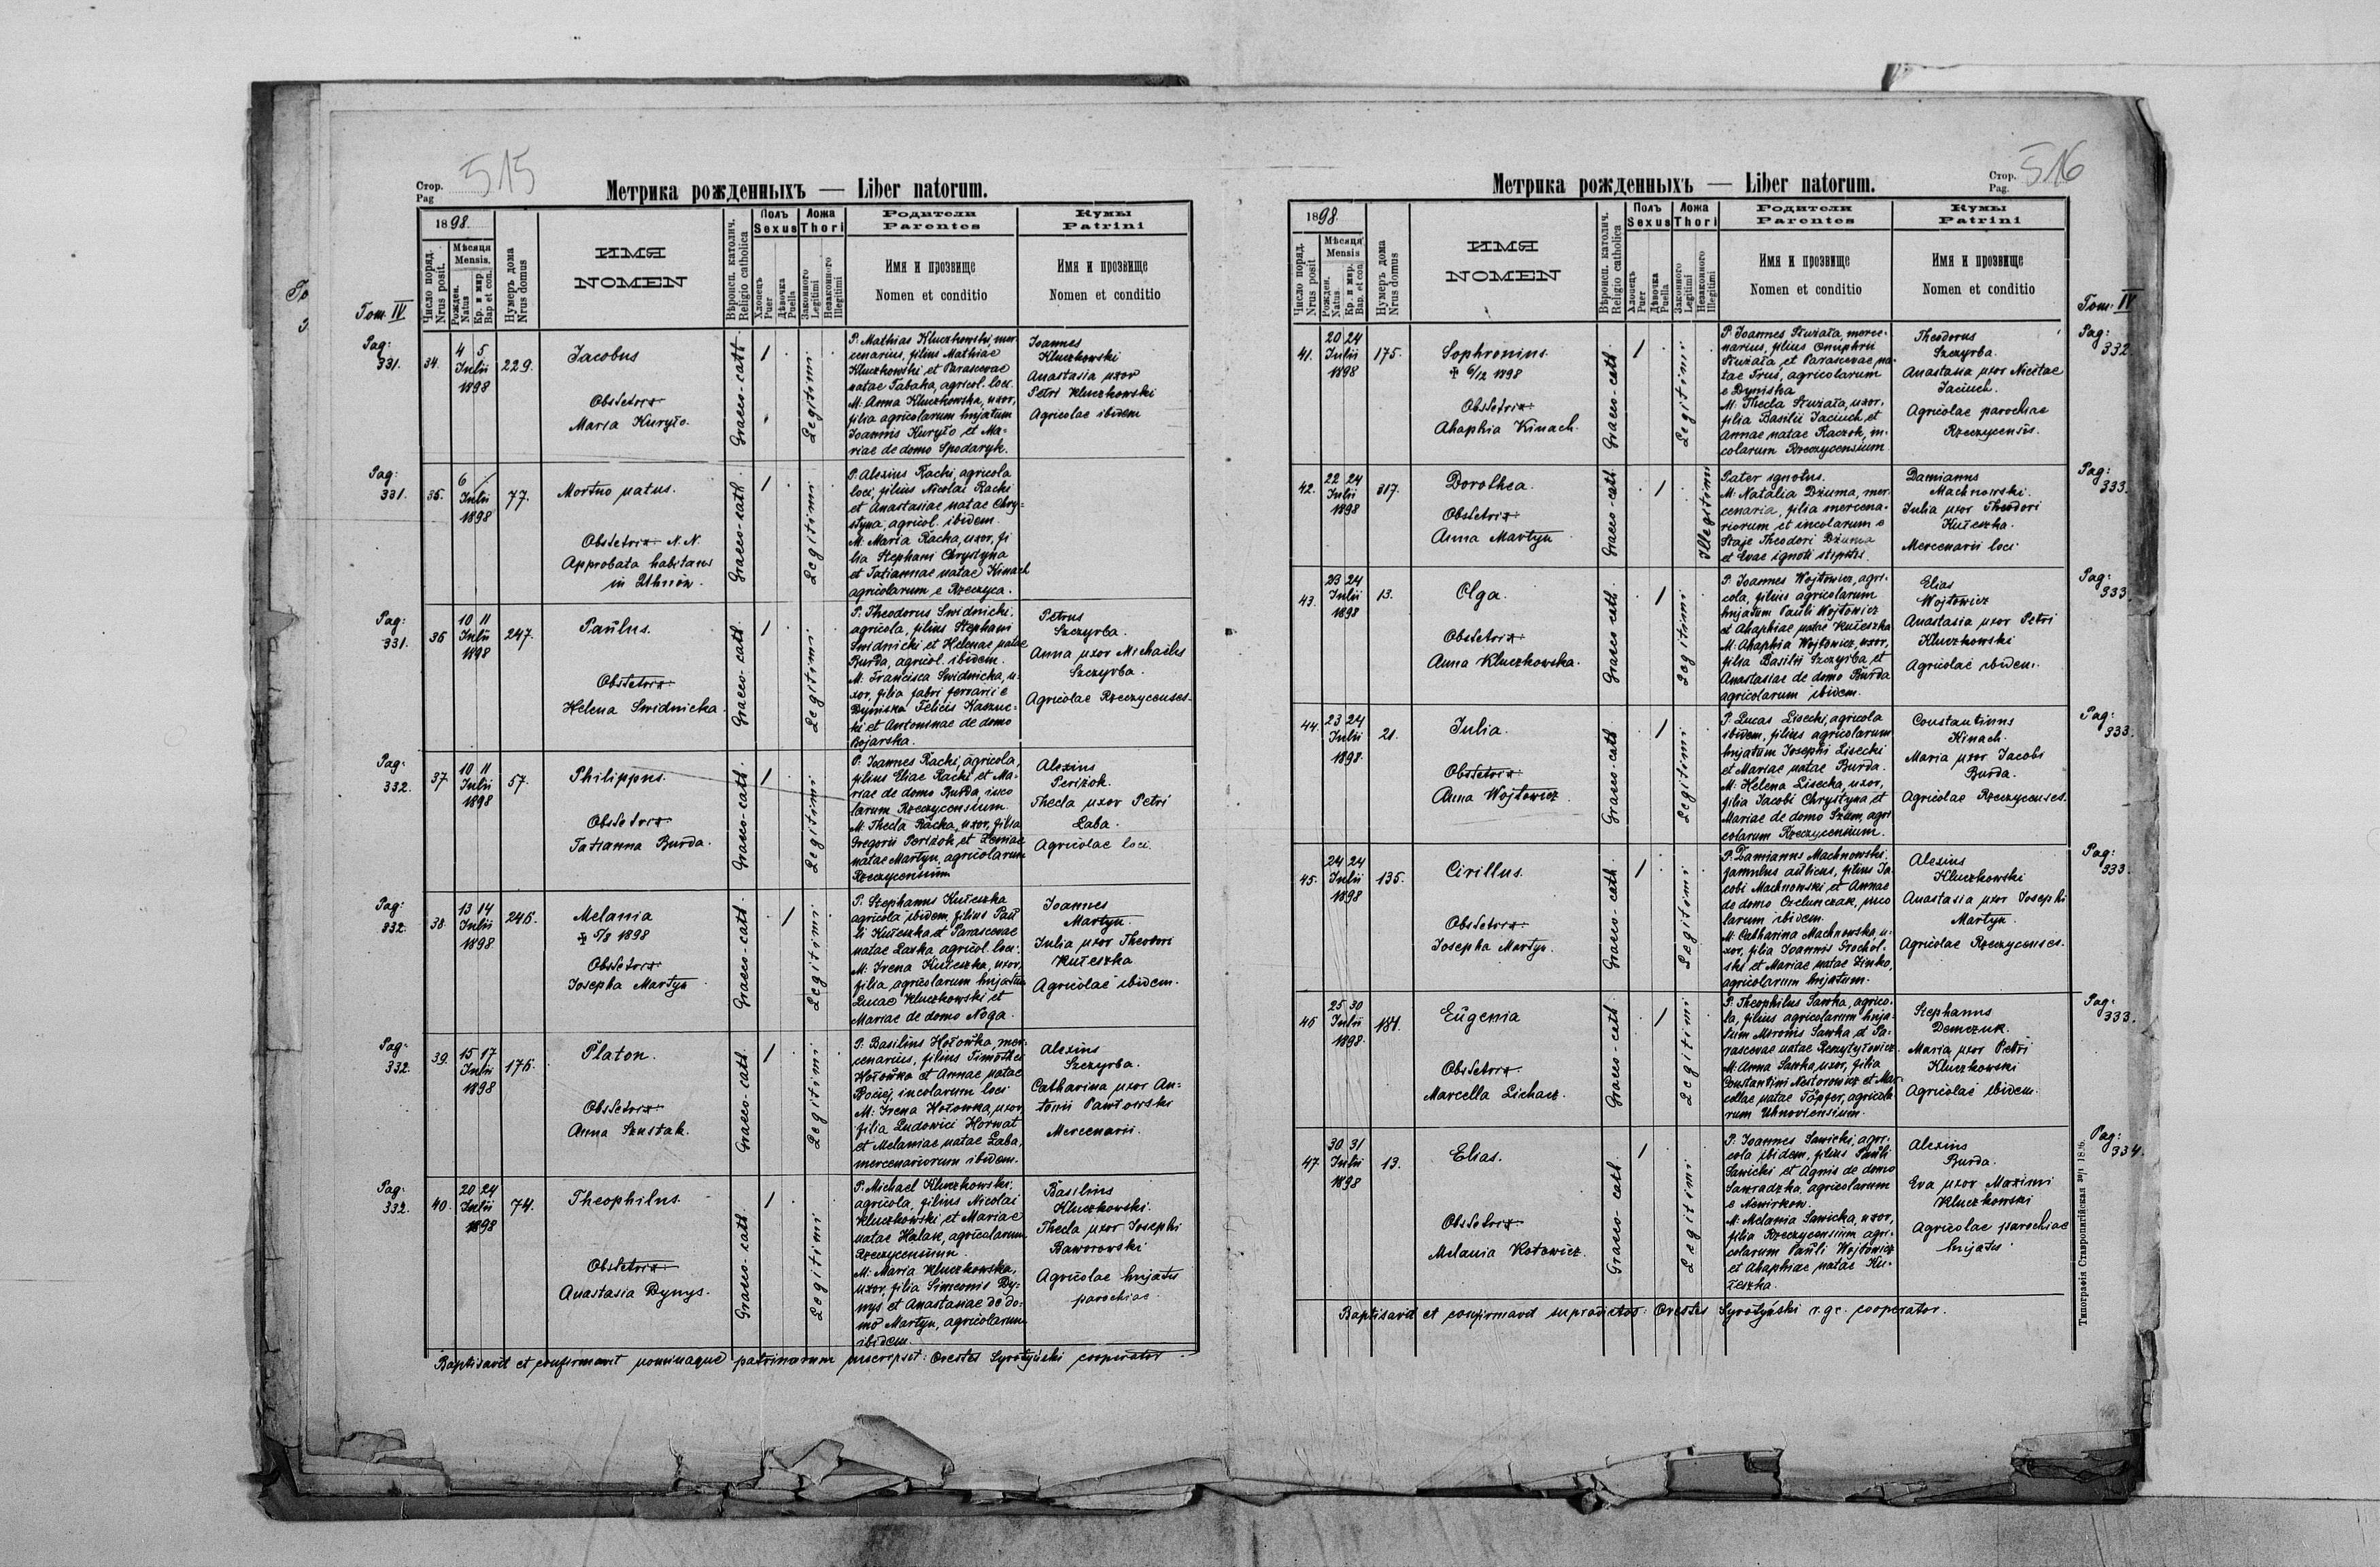 515
Стор.
Pag
Метрика рожденныхъ — Liber natorum.
1898
Число поряд.
Nrus posit.
Мѣсяця
Mensis.
Рожден.
Natus
Кр. и мир.
Bap. et con.
Нумеръ дома
Nrus domus
ИМЯ
NOMEN
Вѣроисп. католич.
Religio catholica
Полъ
Sexus
Хлопецъ
Puer
Дѣвочка
Puella
Ложа
Thori
Законного
Legitimi
Незаконного
Illegitimi
Родители
Parentes
Имя и прозвище
Nomen et conditio
Кумы
Patrini
Имя и прозвище
Nomen et conditio
Tom. IV
Pag:
331.
34.
4 5
Iulii
1898
229.
Iacobus
Obstetrix
Maria Kuryło.
Graeco-cath.
1
Legitimi
P. Mathias Kluczkowski, mer-
cenarius, filius Mathiae
Kluczkowski et Parascevae
natae Sabaha, agricol. loci.
M. Anna Kluczkowska, uxor,
filia agricolarum hujatum
Ioannis Kuryło et Ma-
riae de domo Spodaryk.
Ioannes
Kluczkowski
Anastasia uxor
Petri Kluczkowski
Agricolae ibidem
Pag:
331.
35.
6
Iulii
1898
77.
Mortuo natus.
Obstetrix N. N.
Approbata habitans
in Uhnów.
Graeco-cath.
1
Legitimi
P. Alexius Rachi, agricola
loci, filius Nicolai Rachi
et Anastasiae natae Chry-
styna, agricol. ibidem.
M. Maria Racha, uxor, fi
lia Stephani Chrystyna
et Tatiannae natae Kinach
agricolarum e Rzeczyca.
Pag:
331.
36
10 11
Iulii
1898
247.
Paulus.
Obstetrix
Helena Swidnicka.
Graeco-cath.
1
Legitimi
P. Theodorus Swidnicki,
agricola, filius Stephani
Swidnicki et Helenae natae
Burda, agricol. ibidem.
M. Francisca Swidnicka, u-
xor, filia fabri ferrarii e
Dyniska Felicis Kaszuc-
ki et Antoninae de domo
Bojarska.
Petrus
Szczyrba.
Anna uxor Michaelis
Szczyrba.
Agricolae Rzeczycenses.
Pag:
332.
37
10 11
Iulii
1898
57.
Philippus.
Obstetrix
Tatianna Burda.
Graeco-cath.
1
Legitimi
P. Ioannes Rachi, agricola,
filius Eliae Rachi et Ma-
riae de domo Burda, inco
larum Rzeczycensium.
M. Thecla Racha, uxor, filia
Gregorii Periżok et Xeniae
natae Martyn, agricolarum
Rzeczycensium
Alexius
Periżok.
Thecla uxor Petri
Łaba.
Agricolae loci.
Pag:
332.
38.
13 14
Iulii
1898
246.
Melania
✠ 5/8 1898
Obstetrix
Iosepha Martyn
Graeco-cath.
1
Legitimi
P. Stephanus Kułeszka
agricola ibidem, filius Pau
li Kułeszka et Parascevae
natae Laska, agricol. loci.
M. Irena Kułeszka, uxor,
filia agricolarum hujatum
Lucae Kluczkowski et
Mariae de domo Noga.
Ioannes
Martyn.
Iulia uxor Theodori
Kułeszka
Agricolae ibidem.
Pag:
332.
39.
15 17
Iulii
1898
176.
Platon.
Obstetrix
Anna Szustak.
Graeco-cath.
1
Legitimi
P. Basilius Hołowka, mer-
cenarius, filius Timothei
Hołowka et Annae natae
Bociej, incolarum loci
M. Irena Hołowka, uxor,
filia Ludovici Horwat
et Melaniae natae Łaba,
mercenariorum ibidem.
Alexius
Szczyrba.
Catharina uxor An-
tonii Pawłowski
Mercenarii.
Pag:
332.
40.
20 24
Iulii
1898
74.
Theophilus.
Obstetrix
Anastasia Dynys.
Graeco-cath.
1
Legitimi
P. Michael Kluczkowski,
agricola, filius Nicolai
Kluczkowski et Mariae
natae Halak, agricolarum
Rzeczycensium.
M: Maria Kluczkowska,
uxor, filia Simeonis Dy-
nys et Anastasiae de do-
mo Martyn, agricolarum
ibidem.
Basilius
Kluczkowski.
Thecla uxor Iosephi
Baworowski
Agricolae hujatis
parochiae
Baptisavit et confirmavit nominaque patrinorum inscripsit: Orestes Syrotyński cooperator.
516
Стор.
Pag.
Метрика рожденныхъ — Liber natorum.
1898
Число поряд.
Nrus posit.
Мѣсяця
Mensis.
Рожден.
Natus.
Кр. и мир.
Bap. et con.
Нумеръ дома
Nrus domus
ИМЯ
NOMEN
Вѣроисп. католич.
Religio catholica
Полъ
Sexus
Хлопецъ
Puer
Дѣвочка
Puella
Ложа
Thori
Законного
Legitimi
Незаконного
Illegitimi
Родители
Parentes
Имя и прозвище
Nomen et conditio
Кумы
Patrini
Имя и прозвище
Nomen et conditio
Tom. IV
41.
20 24
Iulii
1898
175.
Sophronius.
✠ 6/12 1898
Obstetrix
Ahaphia Kinach.
Graeco-cath.
1
Legitimi
P. Ioannes Stużała, merce-
narius, filius Onuphrii
Stużała, et Parascevae na-
tae Trus, agricolarum
e Dyniska
M. Thecla Stużała, uxor,
filia Basilii Iaciuch et
Annae natae Raczok, in-
colarum Rzeczycensium
Theodorus
Szczyrba.
Anastasia uxor Nicetae
Iaciuch.
Agricolae parochiae
Rzeczycensis.
Pag:
332
42.
22 24
Iulii
1898
317.
Dorothea.
Obstetrix
Anna Martyn
Graeco-cath.
1
Illegitimi
Pater ignotus.
M. Natalia Dżuma, mer-
cenaria, filia mercena-
riorum et incolarum e
Staje Theodori Dżuma
et Evae ignoti stipitis.
Damianus
Machnowski.
Iulia uxor Theodori
Kułeszka.
Mercenarii loci
Pag:
333.
43.
23 24
Iulii
1898
13.
Olga.
Obstetrix
Anna Kluczkowska.
Graeco cath.
1
Legitimi
P. Ioannes Wojtowicz, agri-
cola, filius agricolarum
hujatum Pauli Wojtowicz
et Ahaphiae natae Kułeszka
M. Ahaphia Wojtowicz, uxor,
filia Basilii Szczyrba et
Anastasiae de domo Burda
agricolarum ibidem.
Elias
Wojtowicz
Anastasia uxor Petri
Kluczkowski
Agricolae ibidem.
Pag:
333.
44.
23 24
Iulii
1898.
21.
Iulia.
Obstetrix
Anna Wojtowicz.
Graeco-cath.
1
Legitimi
P. Lucas Lisecki, agricola
ibidem, filius agricolarum
hujatum Iosephi Lisecki
et Mariae natae Burda.
M. Helena Lisecka, uxor,
filia Iacobi Chrystyna et
Mariae de domo Szum, agri
colarum Rzeczycensium.
Constantinus
Kinach.
Maria uxor Iacobi
Burda.
Agricolae Rzeczycenses.
Pag:
333.
45.
24 24
Iulii
1898
135.
Cirillus.
Obstetrix
Iosepha Martyn.
Graeco-cath.
1
Legitimi
P. Damianus Machnowski,
famulus aulicus, filius Ia
cobi Machnowski et Annae
de domo Czelunczak, inco
larum ibidem.
M. Catharina Machnowska u-
xor, filia Ioannis Grochol-
ski et Mariae natae Zinko,
agricolarum hujatum.
Alexius
Kluczkowski
Anastasia uxor Iosephi
Martyn.
Agricolae Rzeczycenses.
Pag:
333.
46
25 30
Iulii
1898.
187.
Eugenia
Obstetrix
Marcella Lichacz.
Graeco-cath.
1
Legitimi
P. Theophilus Sawka, agrico-
la, filius agricolarum huja-
tum Mironis Sawka et Pa-
rascevae natae Rzczytyłowicz.
M. Anna Sawka, uxor, filia
Constantini Nestorowicz et Mar-
cellae natae Töpfer, agricola
rum Uhnoviensium.
Stephanus
Demczuk.
Maria uxor Petri
Kluczkowski
Agricolae ibidem.
Pag:
333.
47.
30 31
Iulii
1898
13.
Elias.
Obstetrix
Melania Kotowicz.
Graeco-cath.
1
Legitimi
P. Ioannes Sawicki, agri-
cola ibidem, filius Pauli
Sawicki et Agnis de domo
Sawradzka, agricolarum
e Nowirkow.
M. Melania Sawicka, uxor,
filia Rzeczycensium agri-
colarum Pauli Wojtowicz
et Ahaphiae natae Ku-
łeszka.
Alexius
Burda.
Eva uxor Maximi
Kluczkowski
Agricolae parochiae
hujatis
Pag:
334.
Baptisavit et confirmavit supradictos: Orestes Syrotyński r. gr. cooperator.